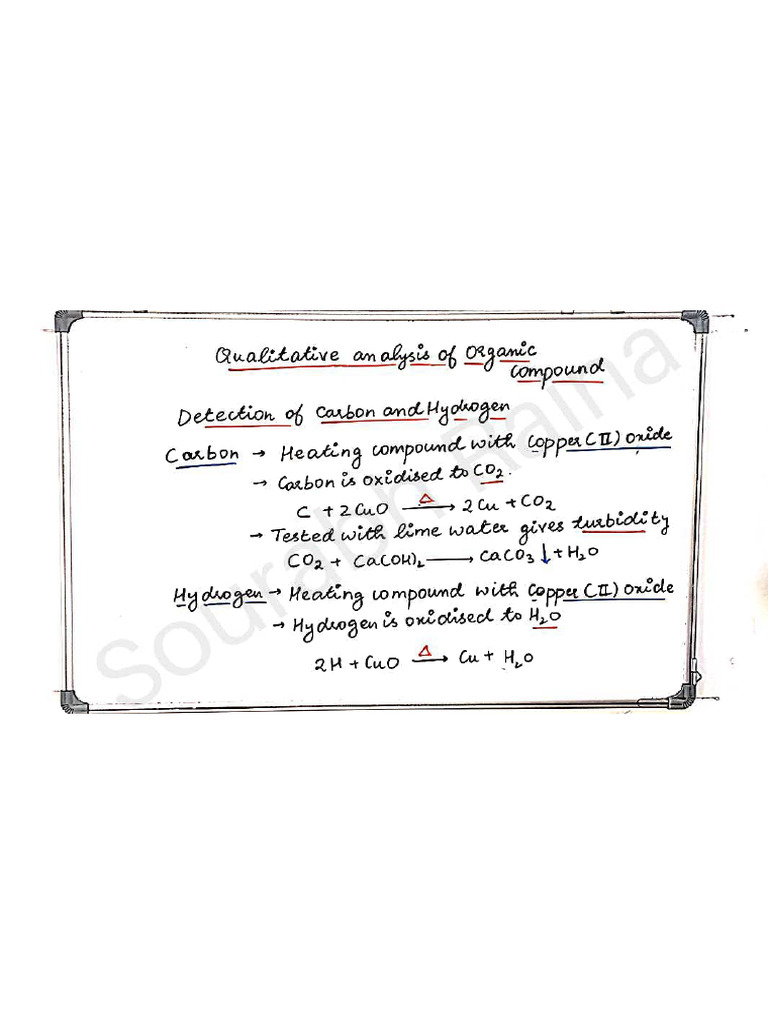 Qualitative analysis of Organic
compound
Detection of Carbon and Hydrogen
Carbon → Heating compound with Copper (II) oxide
→ Carbon is oxidised to CO₂.
C + 2CuO —Δ→ 2Cu + CO₂
→ Tested with lime water gives turbidity
CO₂ + Ca(OH)₂ ⟶ CaCO₃ ↓ + H₂O
Hydrogen → Heating compound with Copper (II) oxide
→ Hydrogen is oxidised to H₂O
2H + CuO —Δ→ Cu + H₂O
Sourabh Raina